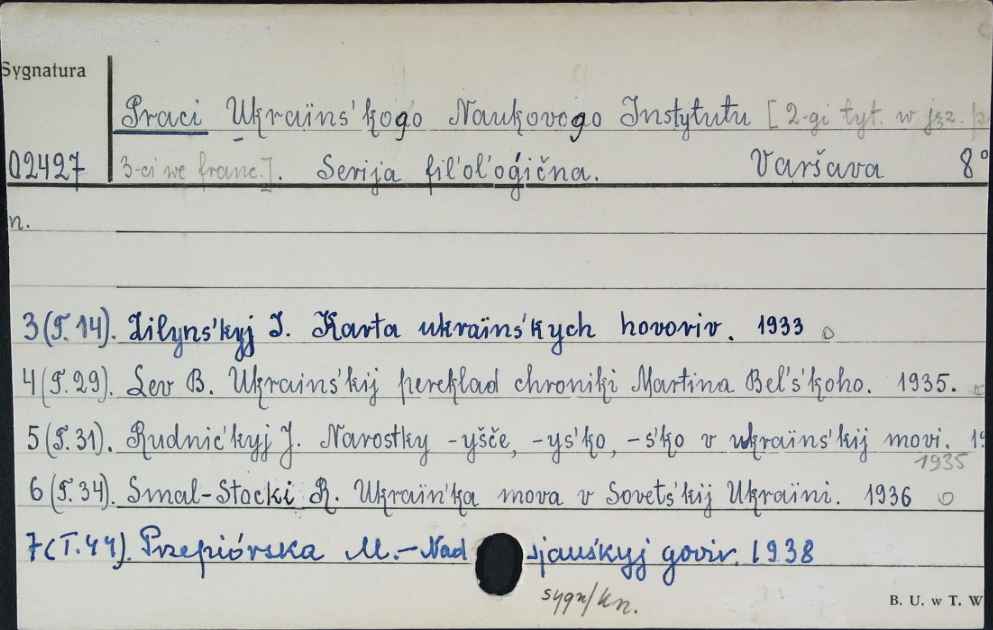 Sygnatura
Praci Ukraïns'kogo Naukovogo Instytutu [2-gi tyt. w jęz.
02427 3-ci we franc.]. Serija fil'ol'ogična. Varšava 8°
n.
3 (T. 14). Zilyns'kyj I. Karta ukraïns'kych hovoriv. 1933
4 (T. 29). Lev B. Ukrains'kij pereklad chroniki Martina Bel's'koho. 1935.
5 (T. 31). Rudnic'kyj J. Narostky -yšče, -ys'ko, -s'ko v ukraïns'kij movi.
1935
6 (T. 34). Smal-Stocki R. Ukraïn'ka mova v Sovets'kij Ukraïni. 1936
7 (T. 44). Przepiórska M. - Nad sjans'kyj govir. 1938
sygn/kn.
B. U. w T. W